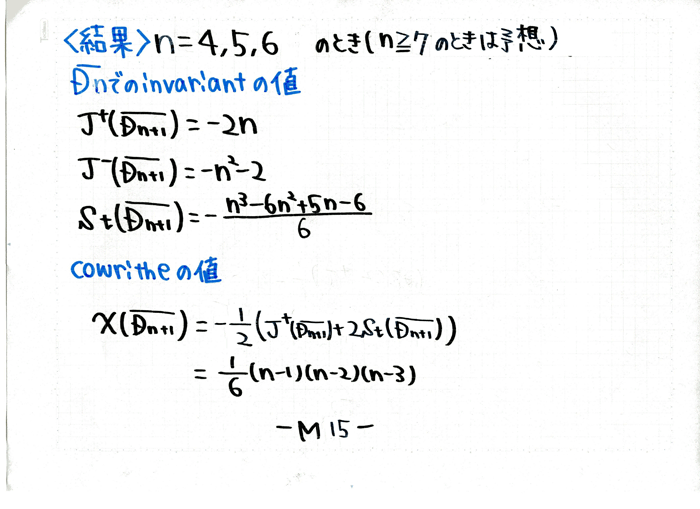 〈結果〉n=4,5,6 のとき(n≧7のときは予想)
D̄nでのinvariantの値
J⁺(\overline{Đn+1})=-2n
J⁻(\overline{Đn+1})=-n²-2
St(\overline{Đn+1})=-\frac{n³-6n²+5n-6}{6}
cowritheの値
χ(\overline{Đn+1})=-\frac{1}{2}(J⁺(\overline{Đn+1})+2St(\overline{Đn+1}))
=\frac{1}{6}(n-1)(n-2)(n-3)
-M15-